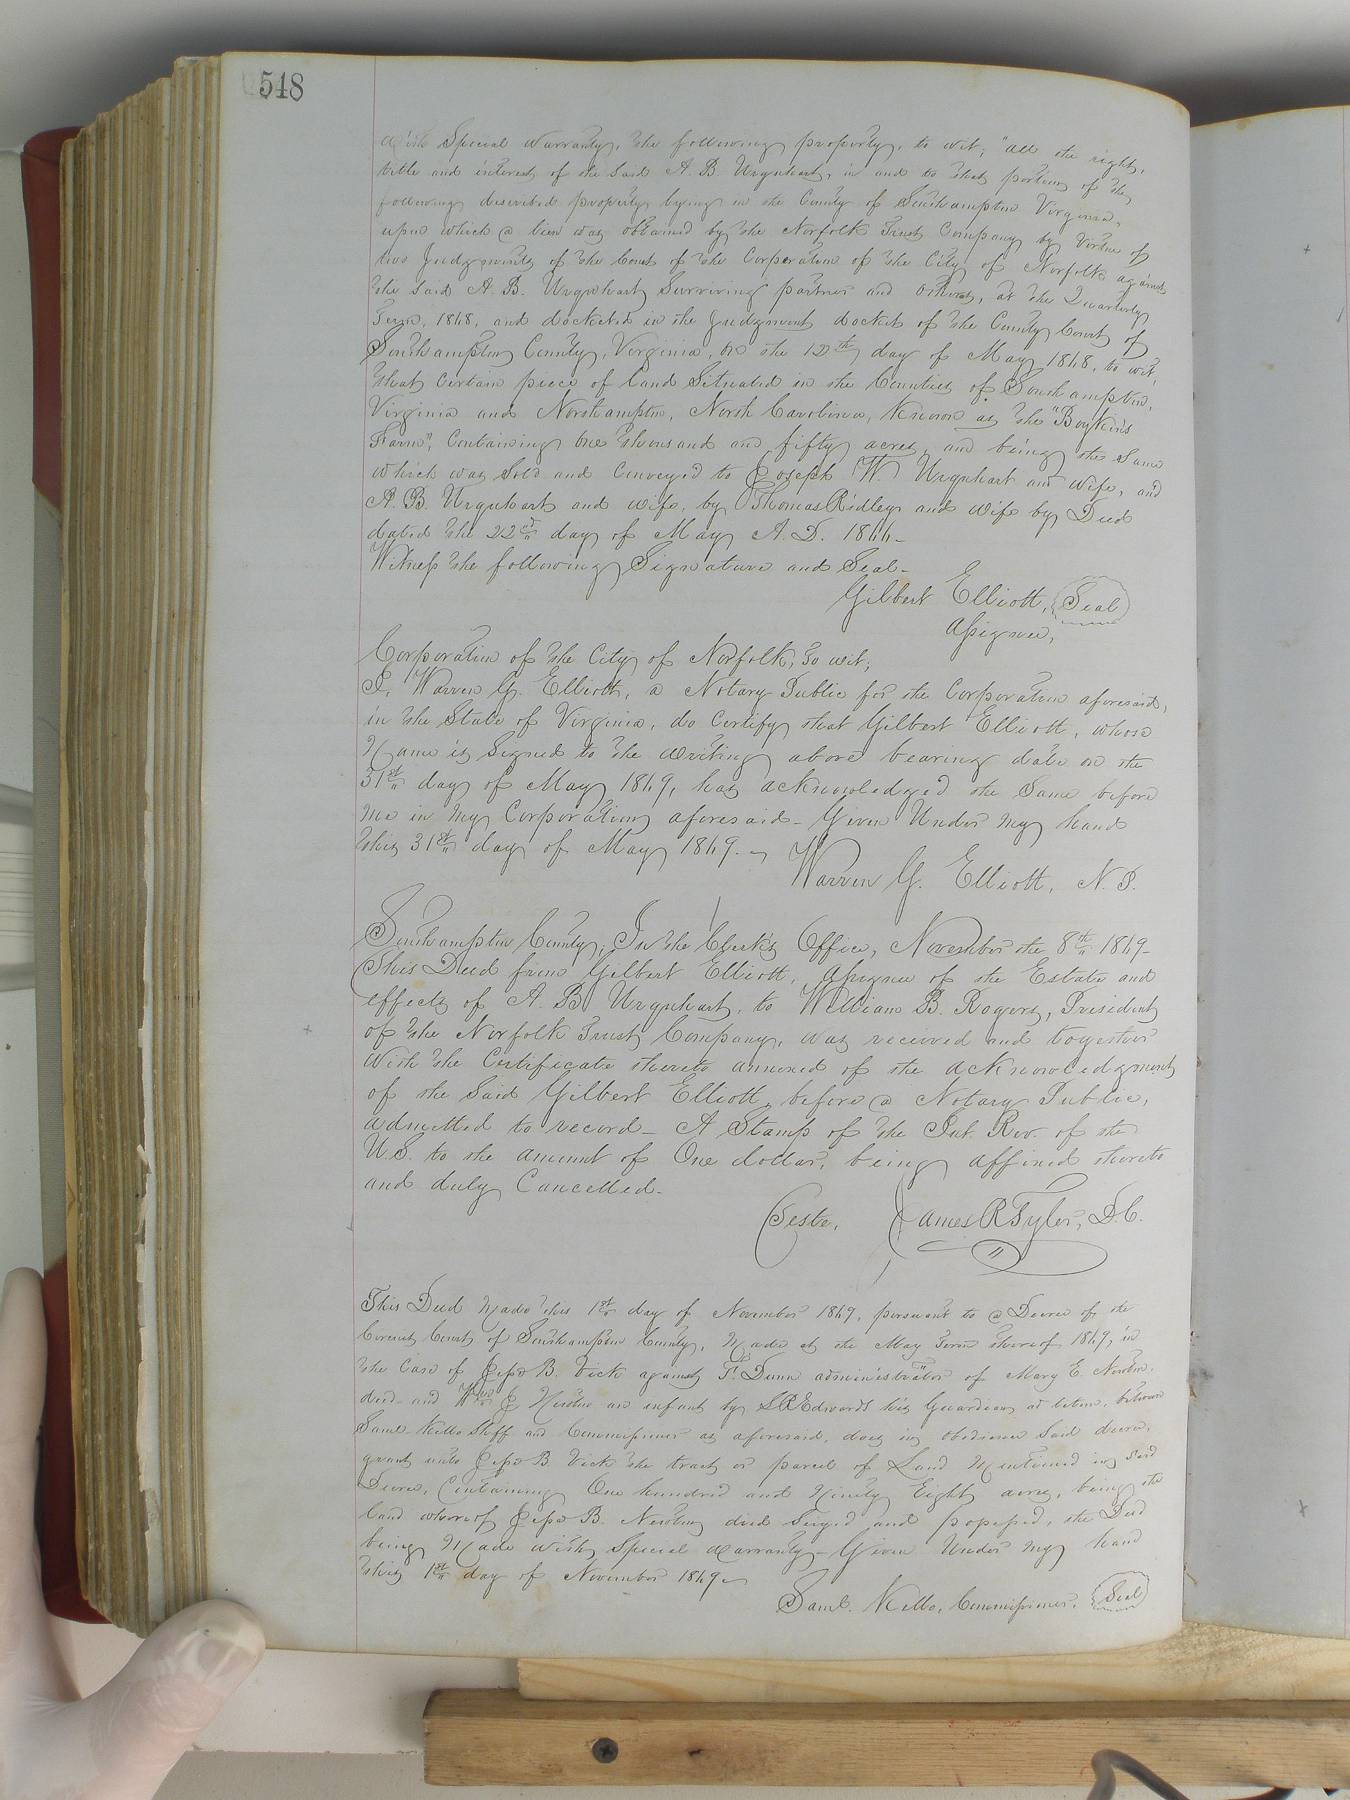 548
with Special Warranty, the following property, to wit; "all the right,
title and interest of the said A. B. Urquhart, in and to that portion of the
following described property lying in the County of Southampton Virginia,
upon which a lien was obtained by the Norfolk Trust Company by Virtue of
two Judgments of the Court of the Corporation of the City of Norfolk against
the said A. B. Urquhart Surviving partner and others, at the Quarterly
Term, 1868, and docketed in the Judgment docket of the County Court of
Southampton County, Virginia, on the 12th day of May 1868, to wit,
that certain piece of land Situated in the Counties of Southampton,
Virginia and Northampton, North Carolina, known as the "Boykins
Farm", Containing One thousand and fifty acres, and being the Same
which was Sold and Conveyed to Joseph W. Urquhart and wife, and
A. B. Urquhart and wife, by Thomas Ridley and wife by Deed
dated the 22nd day of May A. D. 1866-
Witness the following Signature and Seal-
Gilbert Elliott, Seal
Assignee,
Corporation of the City of Norfolk, to wit;
I, Warren G. Elliott, a Notary Public for the Corporation aforesaid,
in the State of Virginia, do Certify that Gilbert Elliott, whose
Name is Signed to the writing above bearing date on the
31st day of May 1869, has acknowledged the Same before
me in my Corporation aforesaid- Given Under my hand
this 31st day of May 1869.-
Warren G. Elliott, N. P.
Southampton County; In the Clerk's Office, November the 8th 1869-
This Deed from Gilbert Elliott, Assignee of the Estate and
effects of A. B. Urquhart, to William B. Rogers, President
of the Norfolk Trust Company, was received and together
with the Certificate thereto annexed of the acknowledgment
of the Said Gilbert Elliott, before a Notary Public,
admitted to record- A Stamp of the Int. Rev. of the
U.S. to the amount of One dollar, being affixed thereto
and duly Cancelled.
Teste, James R Tyler, D.C.
This Deed Made this 1st day of November 1869, pursuant to a Decree of the
Circuit Court of Southampton County, Made at the May Term thereof 1869, in
the Case of Jesse B. Vick against T. Dunn administrator of Mary E. Newton
decd. and Wm J Newton an infant by S B Edwards his Guardian ad litem, between
Saml. Kello Shff and Commissioner as aforesaid, does in obedience Said decree,
grant unto Jesse B. Vick the tract or parcel of Land Mentioned in said
Decree, Containing One hundred and Ninety Eight acres, being the
land whereof Jesse B. Newton died Seized and possessed, the Deed
being Made with Special warranty- Given Under my hand
this 1st day of November 1869-
Saml. Kello, Commissioner, Seal